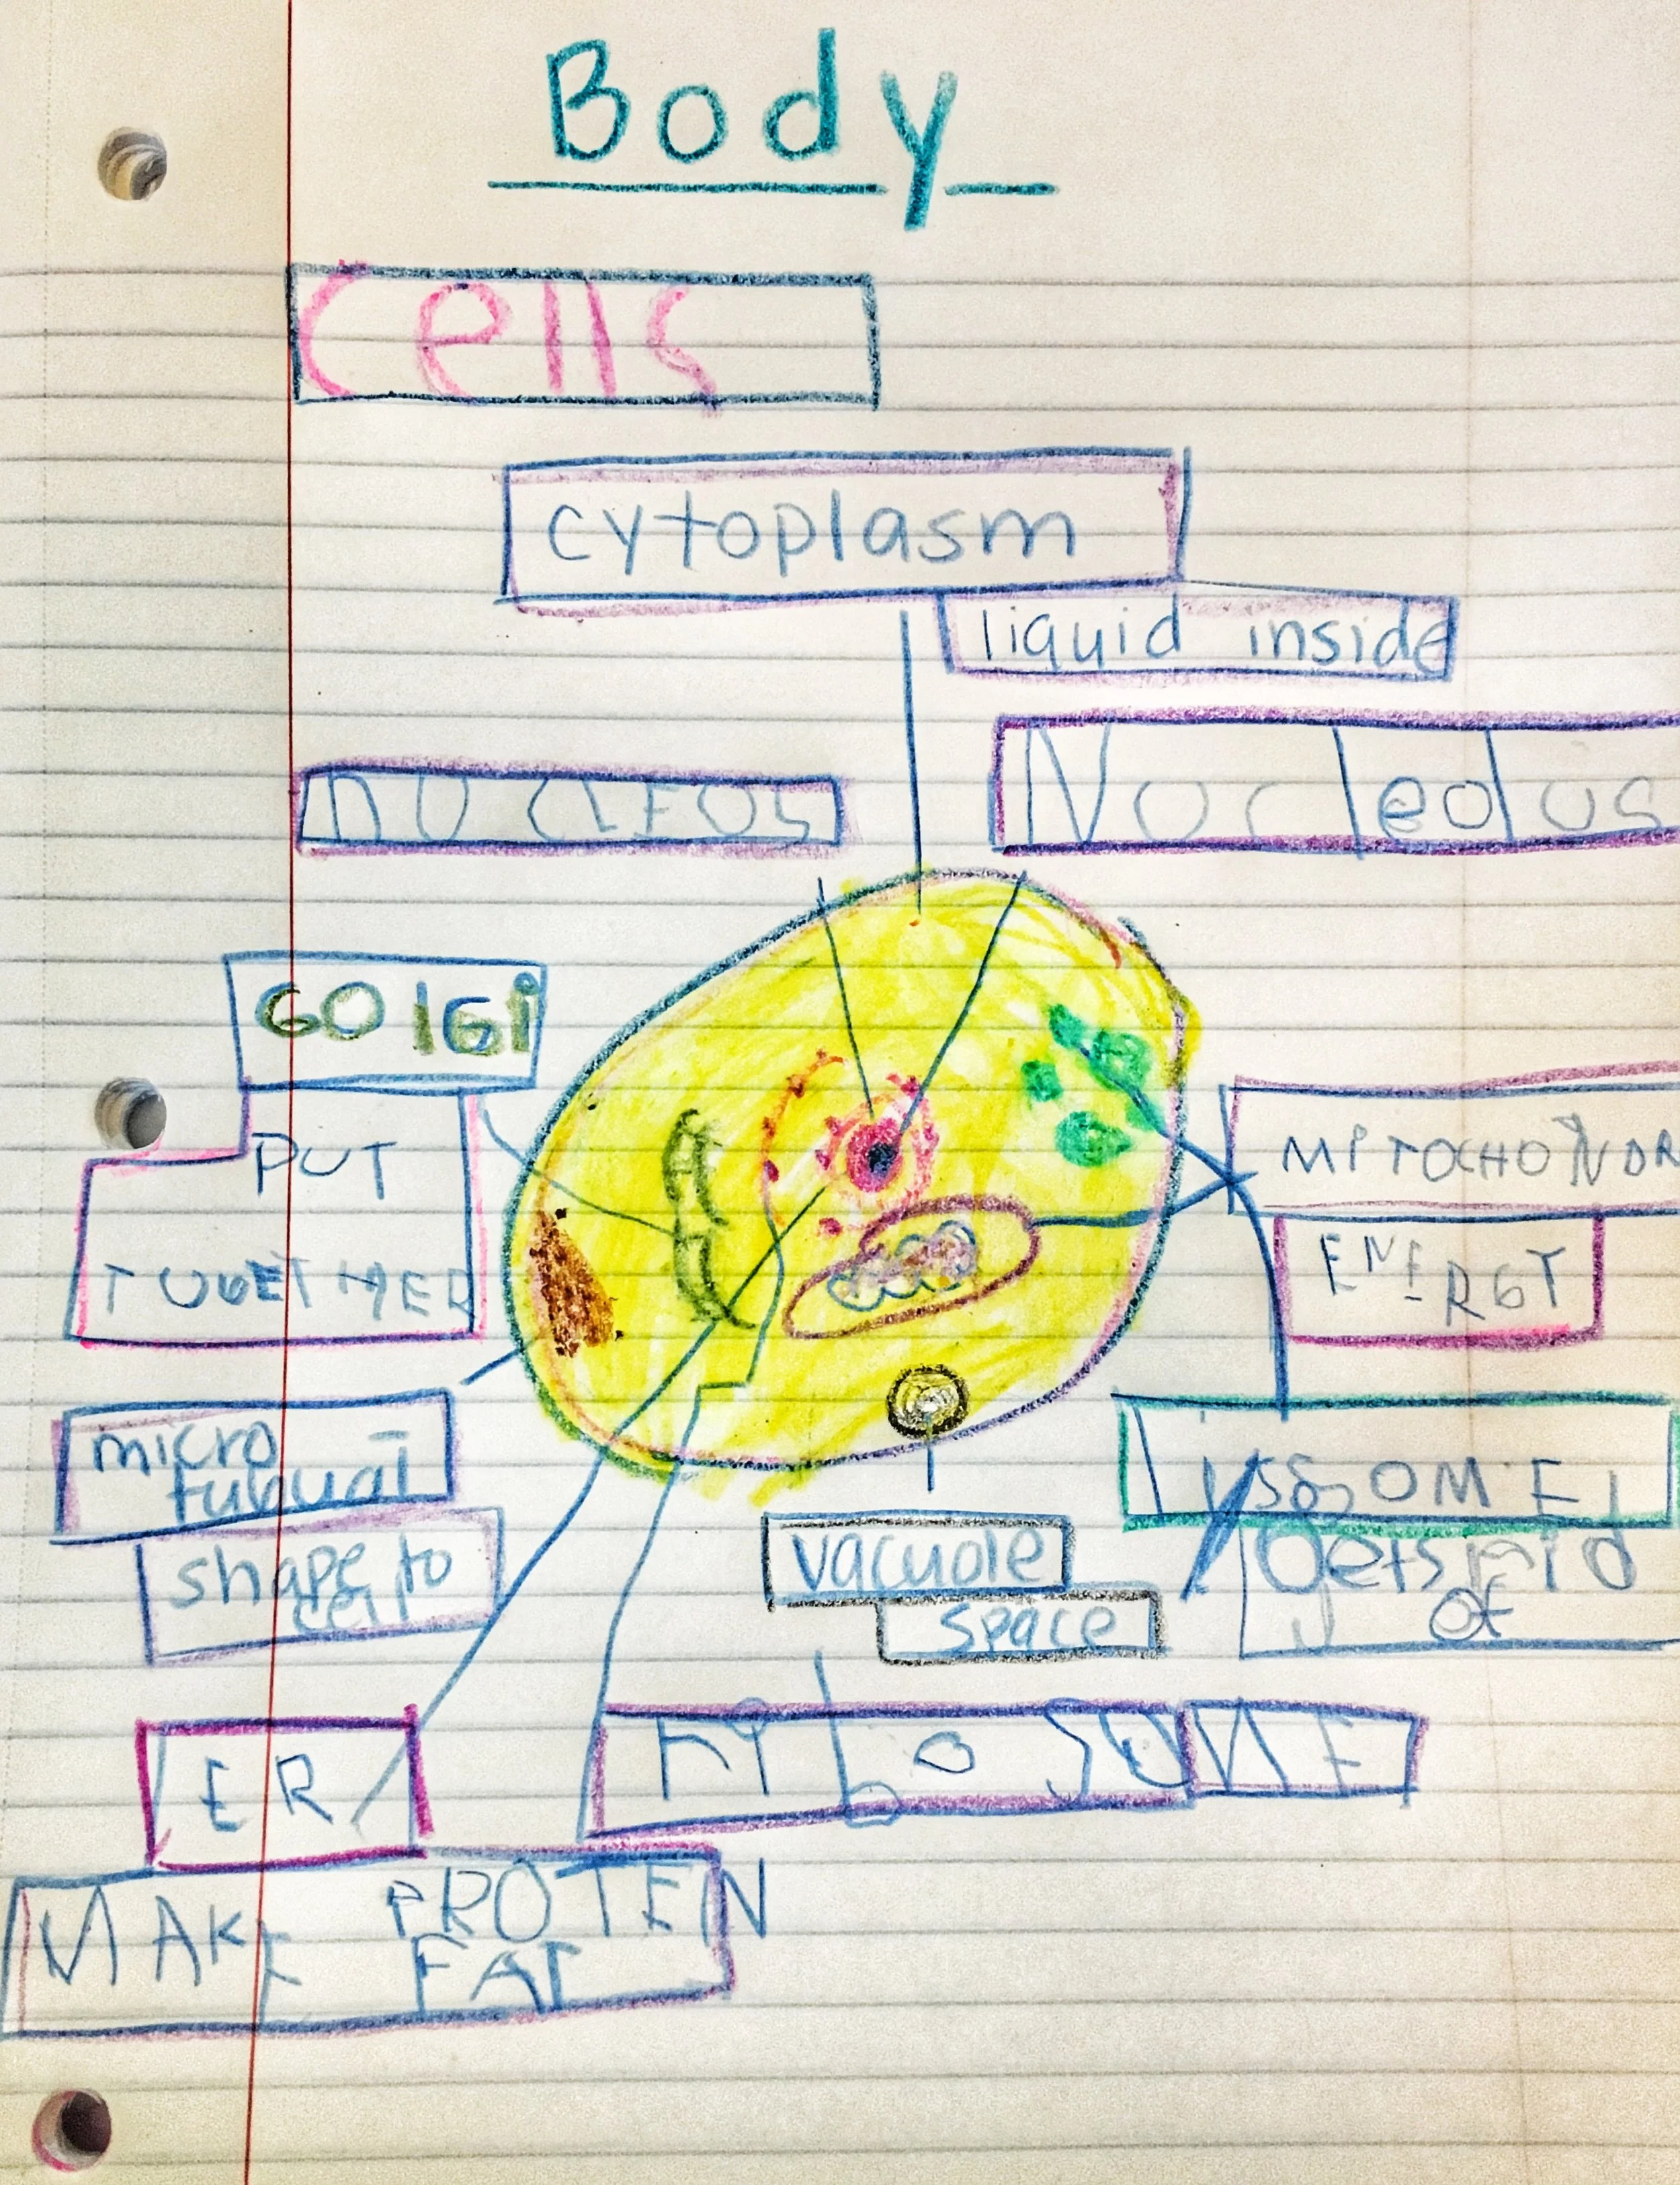 Body
Cells
cytoplasm
liquid inside
nucleos
Nucleolus
GOlGi
PUT
TOGETHER
MiTOCHONDR
ENERGY
micro
shape to
cell
vacuole
space
Gets rid
of
ER
MAKE PROTEIN
FAT